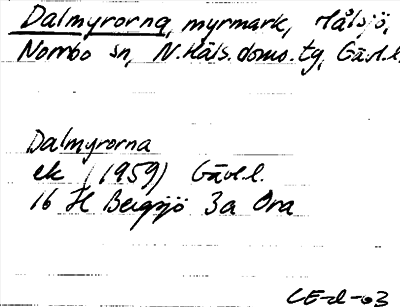 Dalmyrorna, myrmark, Målsjö,
Norrbo sn, N. Häls. doms. tg, Gävl.l.
Dalmyrorna
ek (1959) Gävl.l.
16 H Bergsjö 3a Ora
CE-d-63